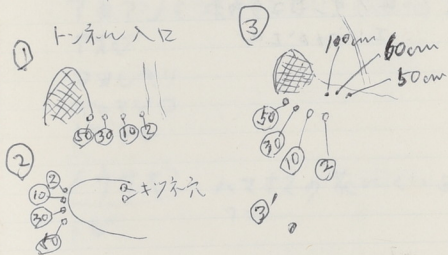 ①
トンネル入口
㊿ ㉚ ⑩ ②
②
2
10
30
50
キツネ穴
③
100cm
60cm
50cm
50
30
10
2
3'